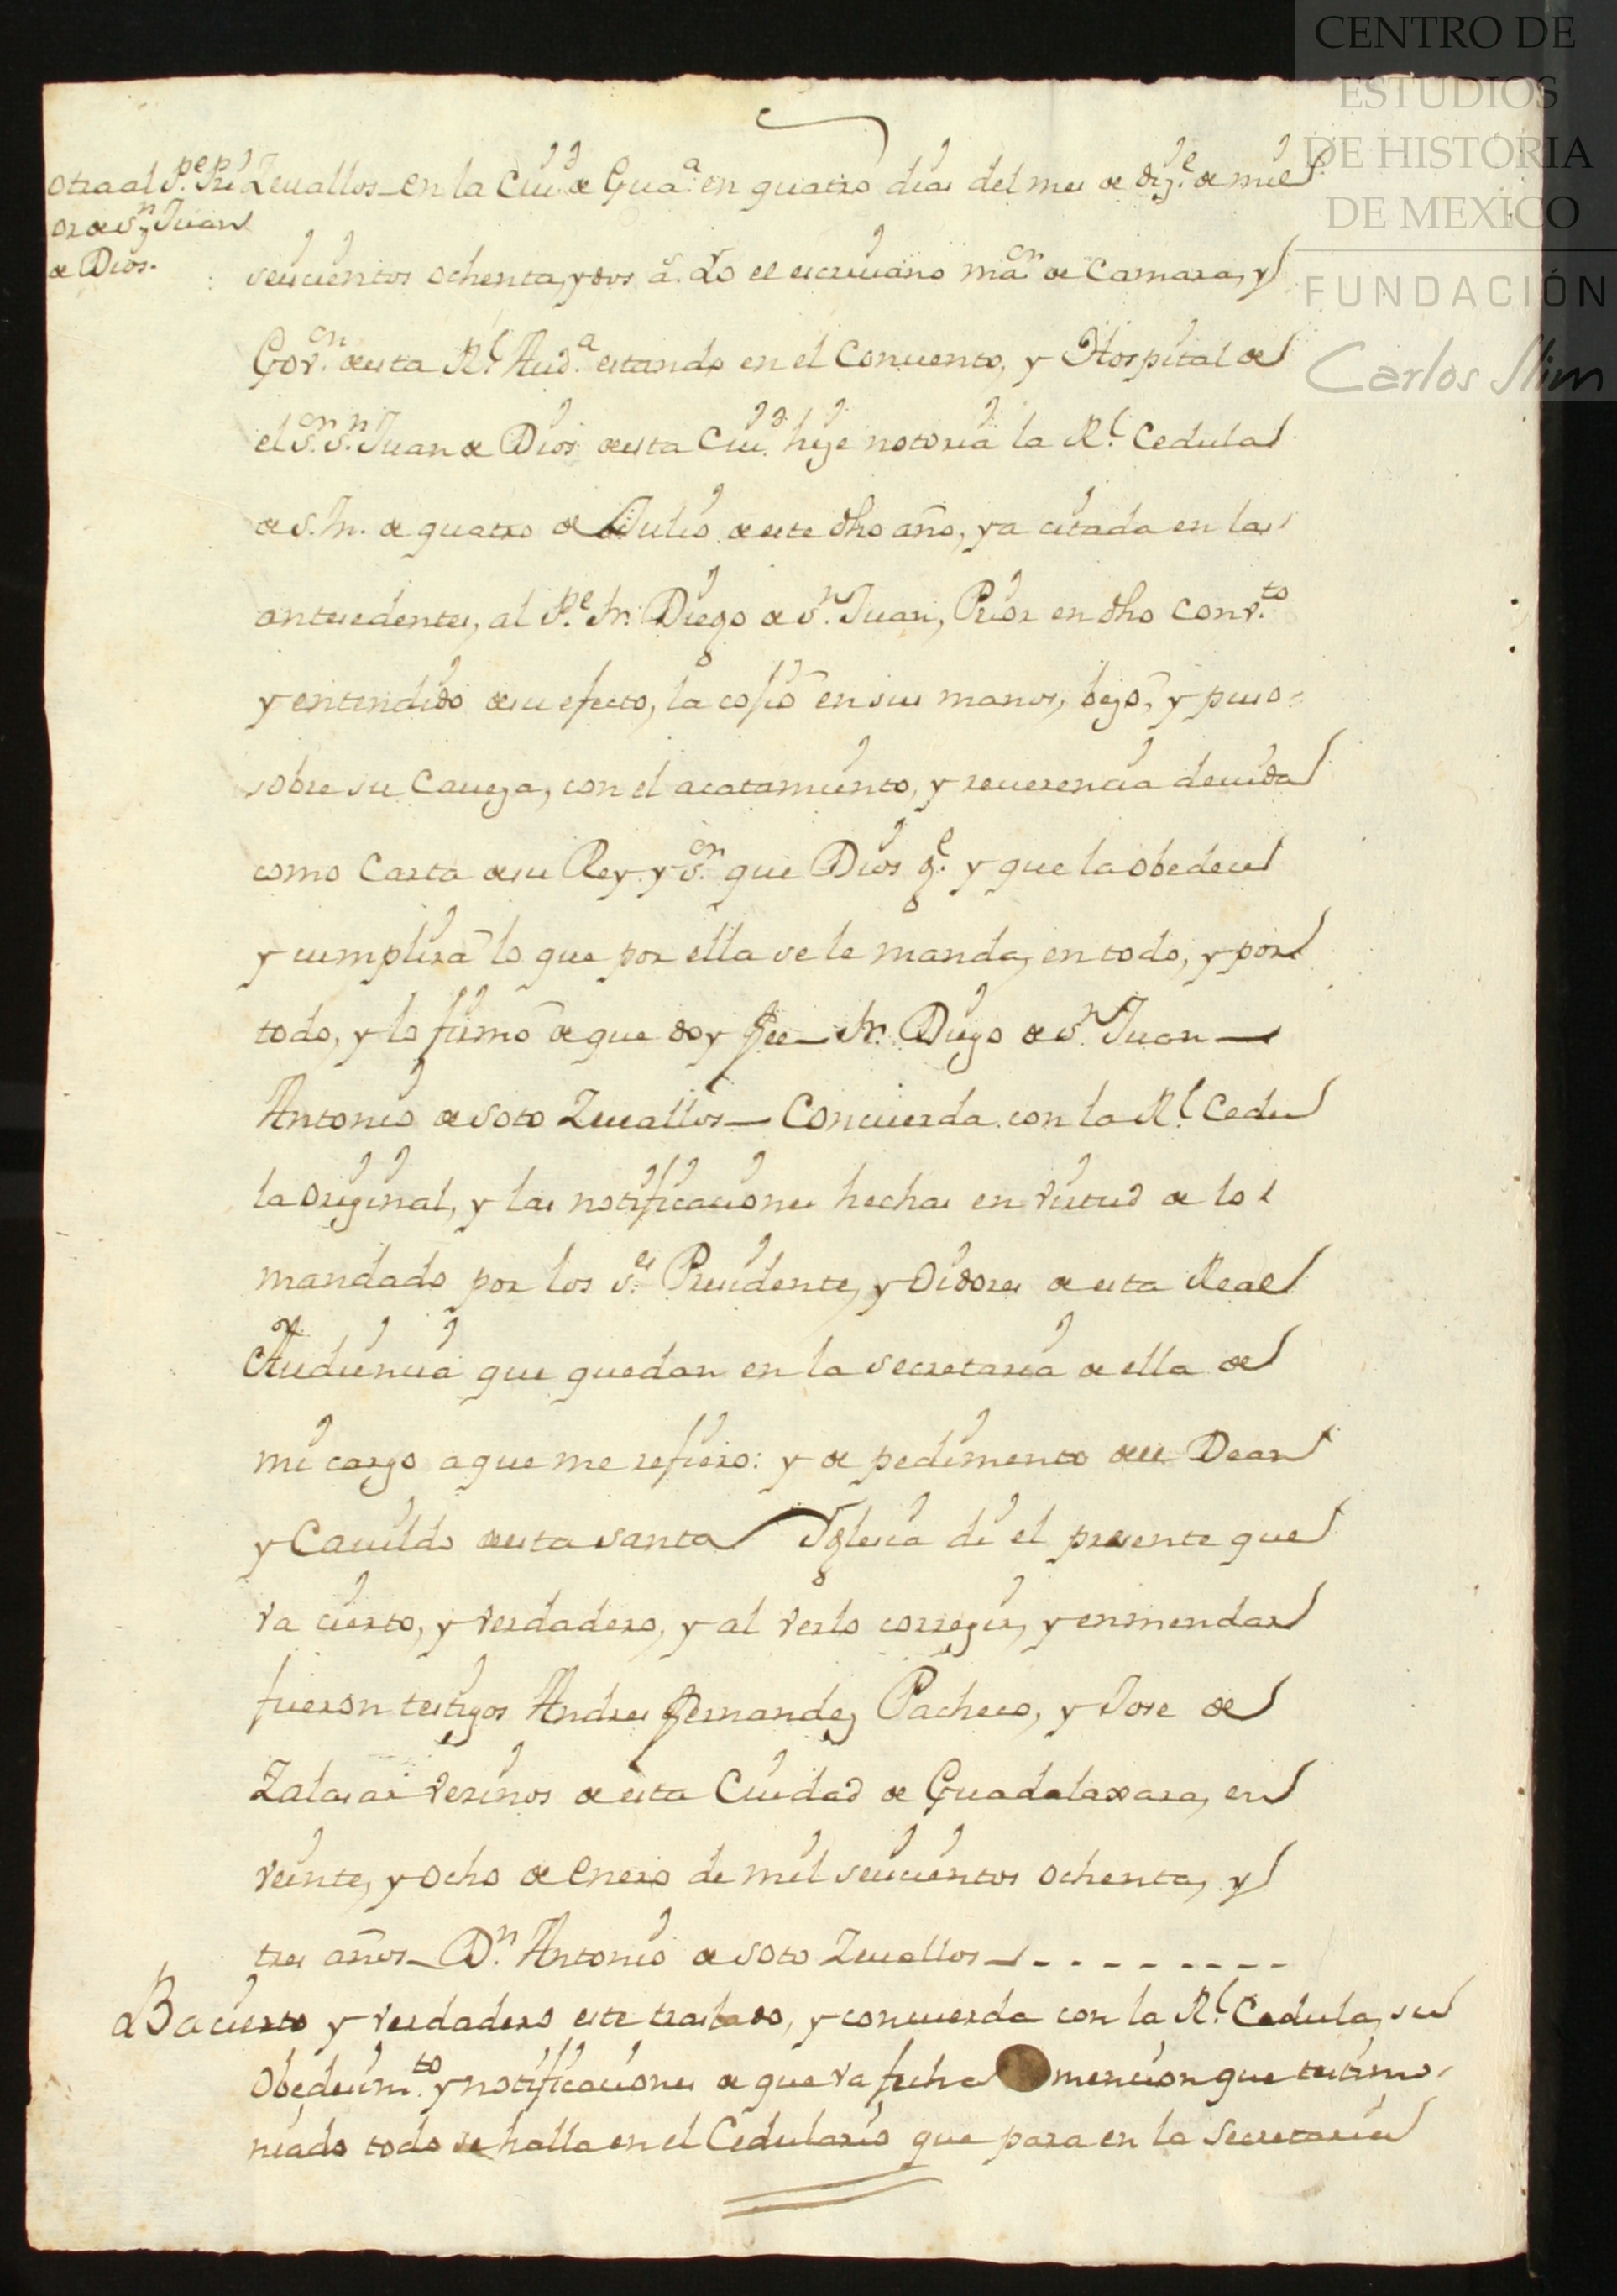 CENTRO DE
ESTUDIOS
DE HISTORIA
DE MEXICO
FUNDACIÓN
Carlos Slim
otra al P.e Pri
or de S.n Juan
de Dios.
Zeuallos en la Ciu.d de Gua.a en quatro dias del mes de Diz.e de mil
seiscientos ochenta, y dos a.s Yo el escriuano m.or de Camara, y
Gov.on desta R.l Aud.a estando en el Conuento, y Hospital de
el S.or S.n Juan de Dios desta Ciu.d hize notoria la R.l Cedula
de S. M. de quatro de Julio de este dho año, ya citada en las
antecedentes, al P.e Fr. Diego de S.n Juan, Prior en dho Conv.to
y entendido de su efecto, la cojio en sus manos, bezo, y puso
sobre su Caueza, con el acatamiento, y reuerencia deuida
como Carta de su Rey y S.or que Dios g.e y que la obedece
y cumplira lo que por ella se le manda, en todo, y por
todo, y lo firmo de que doy fee Fr. Diego de S.n Juan
Antonio de Soto Zeuallos Concuerda con la R.l Cedu
la original, y las notificaciones hechas en virtud de lo
mandado por los S.es Presidente, y Oidores de esta Real
Audiencia que quedan en la secretaria de ella de
mi cargo a que me refiero: y de pedimento del Dean
y Cauildo desta Santa Iglesia di el presente que
va cierto, y verdadero, y al verlo corregir, y enmendar
fueron testigos Andres Fernandez Pacheco, y Jose de
Zalasar vezinos de esta Ciudad de Guadalaxara, en
veinte, y ocho de enero de mil seiscientos ochenta, y
tres años D.n Antonio de Soto Zeuallos
Ba cierto y verdadero este traslado, y concuerda con la R.l Cedula, su
obedecim.to y notificaciones de que va fecha mencion que testimo
niado todo se halla en el Cedulario que para en la Secretaria